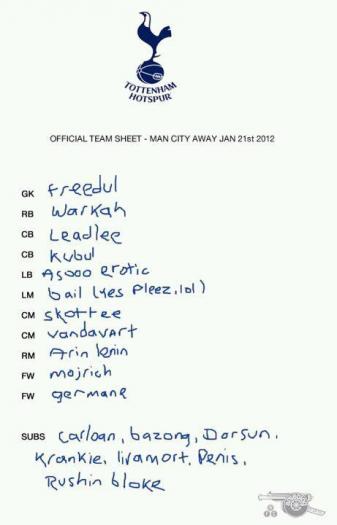 TOTTENHAM
HOTSPUR
OFFICIAL TEAM SHEET - MAN CITY AWAY JAN 21st 2012
GK freedul
RB Warkah
CB Leadlee
CB Kubul
LB Asooo erotic
LM bail (yes pleez, lol)
CM skottee
CM vandavart
RM Arin lenin
FW mojrich
FW germane
SUBS carloan, bazong, Dorsun,
Krankie, livamort, Penis,
Rushin bloke